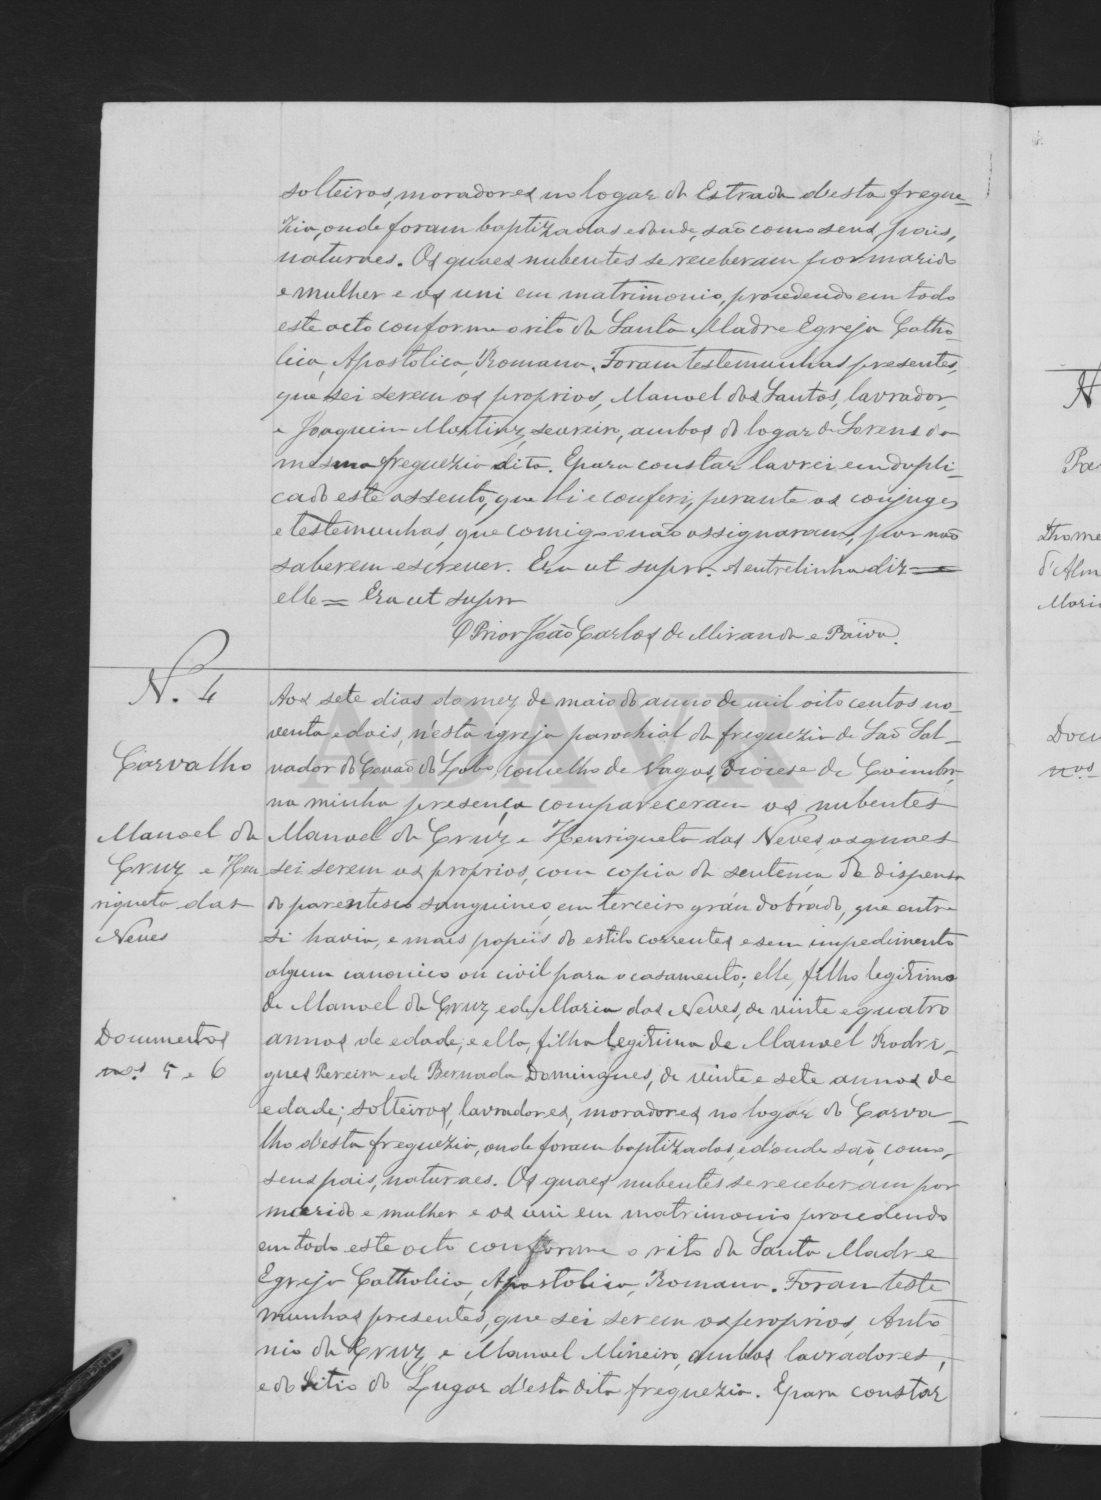 solteiros, moradores no logar da Estrada d'esta fregue-
zia, onde foram baptizados e donde, são como seus pais,
naturaes. Os quaes nubentes se receberam por marido
e mulher e os uni em matrimonio, procedendo em todo
este acto conforme o rito da Santa Madre Egreja Catho-
lica, Apostolica, Romana. Foram testemunhas presentes,
que sei serem os proprios, Manoel dos Santos, lavrador,
e Joaquim Martins, ambos do logar de
mesma freguezia dita. E para constar lavrei em dupli-
cado este assento, que li e conferi, perante os conjuges
e testemunhas, que comigo não assignaram, por não
saberem escrever. Era ut supra. A entrelinha diz =
elle = Era ut supra
O Prior João Carlos de Miranda e Paiva.
N. 4
Carvalho
Manoel da
Cruz e Hen
riqueta das
Neves
Documentos
nos. 5 e 6
Aos sete dias do mez de maio do anno de mil oito centos no-
venta e dois, n'esta igreja parochial da freguezia de São Sal-
vador do Covão do Lobo, concelho de Vagos, diocese de Coimbra,
na minha presença compareceram os nubentes
Manoel da Cruz e Henriqueta das Neves, os quaes
sei serem os proprios, com copia da sentença de dispensa
do parentesco sanguineo, em terceiro gráu dobrado, que entre
si havia, e mais papeis do estilo correntes e sem impedimento
algum canonico ou civil para o casamento; elle, filho legitimo
de Manoel da Cruz e de Maria das Neves, de vinte e quatro
annos de edade; e ella, filha legitima de Manoel Rodri-
gues Pereira e de Bernada Domingues, de vinte e sete annos de
edade; solteiros, lavradores, moradores no logar do Carva-
lho d'esta freguezia, onde foram baptizados, e d'onde são, como,
seus pais, naturaes. Os quaes nubentes se receberam por
marido e mulher e os uni em matrimonio procedendo
em todo este acto conforme o rito da Santa Madre
Egreja Catholica, Apostolica, Romana. Foram teste-
munhas presentes, que sei serem os proprios, Anto-
nio da Cruz e Manoel Mineiro, ambos lavradores,
e do Sitio do Lugar d'esta dita freguezia. E para constar
ADAVR
N
Thome
d'Alm
Maria
Docu
nos